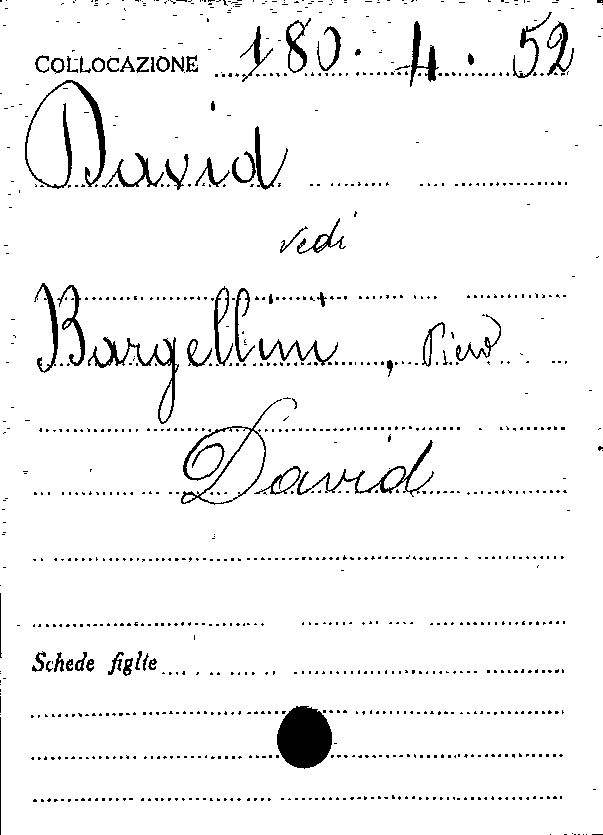 COLLOCAZIONE 180.4.52
David
vedi
Bargellini, Piero
David
Schede figlie